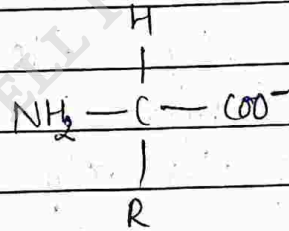 H
NH₂ — C — COO⁻
R